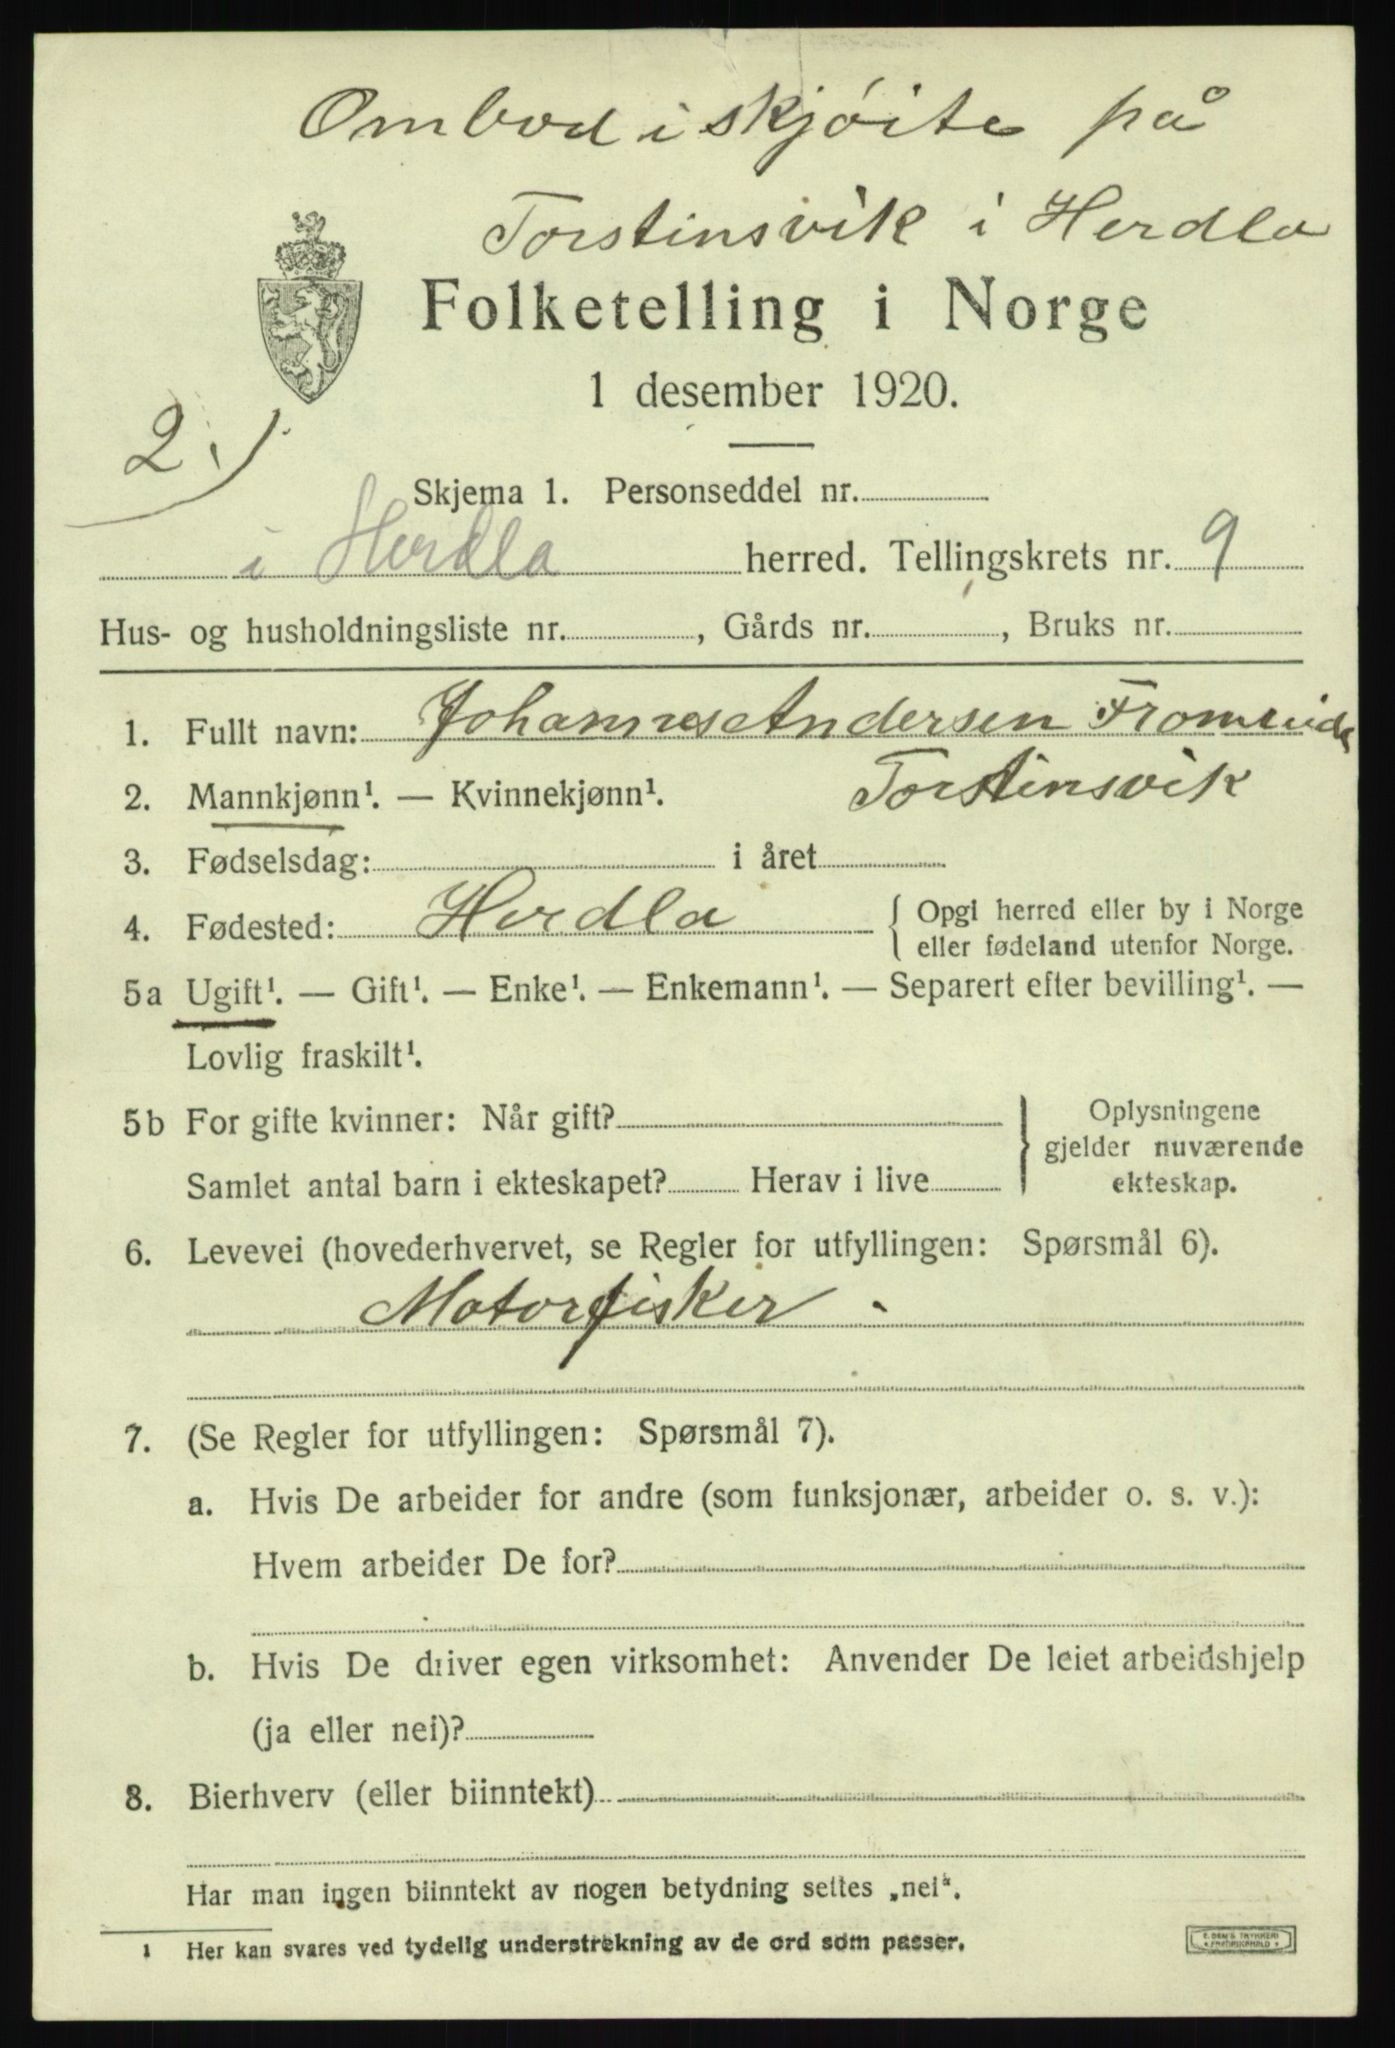 Ombod i skjøite på
Torstinsvik i Herdla
Folketelling i Norge
1 desember 1920.
2.)
Skjema 1. Personseddel nr.
i Herdla herred. Tellingskrets nr. 9
Hus- og husholdningsliste nr. , Gårds nr. , Bruks nr.
1. Fullt navn: Johannes Andersen
2. Mannkjønn¹. — Kvinnekjønn¹. Torstinsvik
3. Fødselsdag: i året
4. Fødested: Herdla { Opgi herred eller by i Norge
eller fødeland utenfor Norge.
5a Ugift¹. — Gift¹. — Enke¹. — Enkemann¹. — Separert efter bevilling¹. —
Lovlig fraskilt¹.
5b For gifte kvinner: Når gift?
Samlet antal barn i ekteskapet? Herav i live
} Oplysningene
gjelder nuværende
ekteskap.
6. Levevei (hovederhvervet, se Regler for utfyllingen: Spørsmål 6).
Motorfisker.
7. (Se Regler for utfyllingen: Spørsmål 7).
a. Hvis De arbeider for andre (som funksjonær, arbeider o. s. v.):
Hvem arbeider De for?
b. Hvis De driver egen virksomhet: Anvender De leiet arbeidshjelp
(ja eller nei)?
8. Bierhverv (eller biinntekt)
Har man ingen biinntekt av nogen betydning settes „nei“.
1 Her kan svares ved tydelig understrekning av de ord som passer.